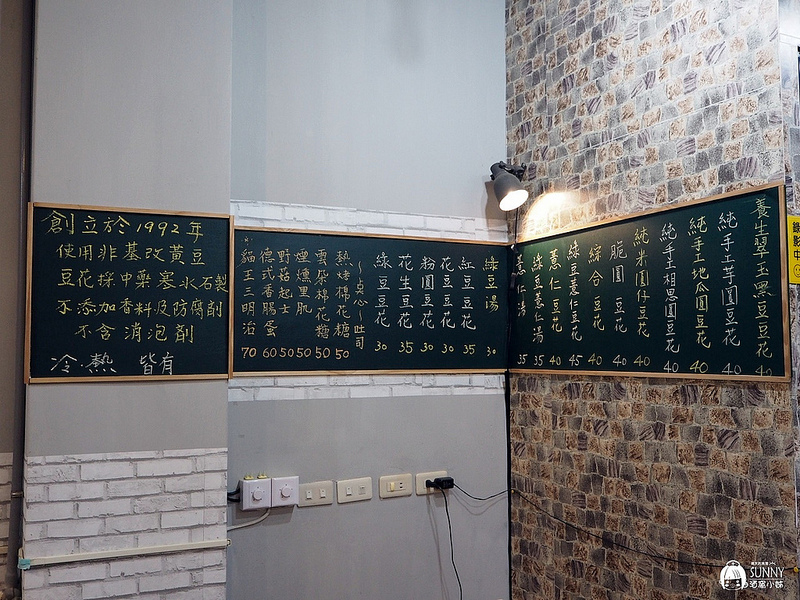 創立於1992年
使用非基改黃豆
豆花採中藥寒水石製
不添加香料及防腐劑
不含消泡劑
冷.熱 皆有
養生翠玉黑豆豆花 40
純手工芋圓豆花 40
純手工地瓜圓豆花 40
純手工相思圓豆花 40
純米圓仔豆花 40
脆圓豆花 40
綜合豆花 40
綠豆薏仁豆花 45
薏仁豆花 40
綠豆薏仁湯 35
薏仁湯 35
綠豆湯 30
紅豆豆花 35
花豆豆花 30
粉圓豆花 30
花生豆花 35
綠豆豆花 30
~点心~吐司
熱烤棉花糖 50
雲朵棉花糖 50
煙燻里肌 50
野菇起士 50
德式香腸蛋 60
貓王三明治 70
錄影中
SUNNY